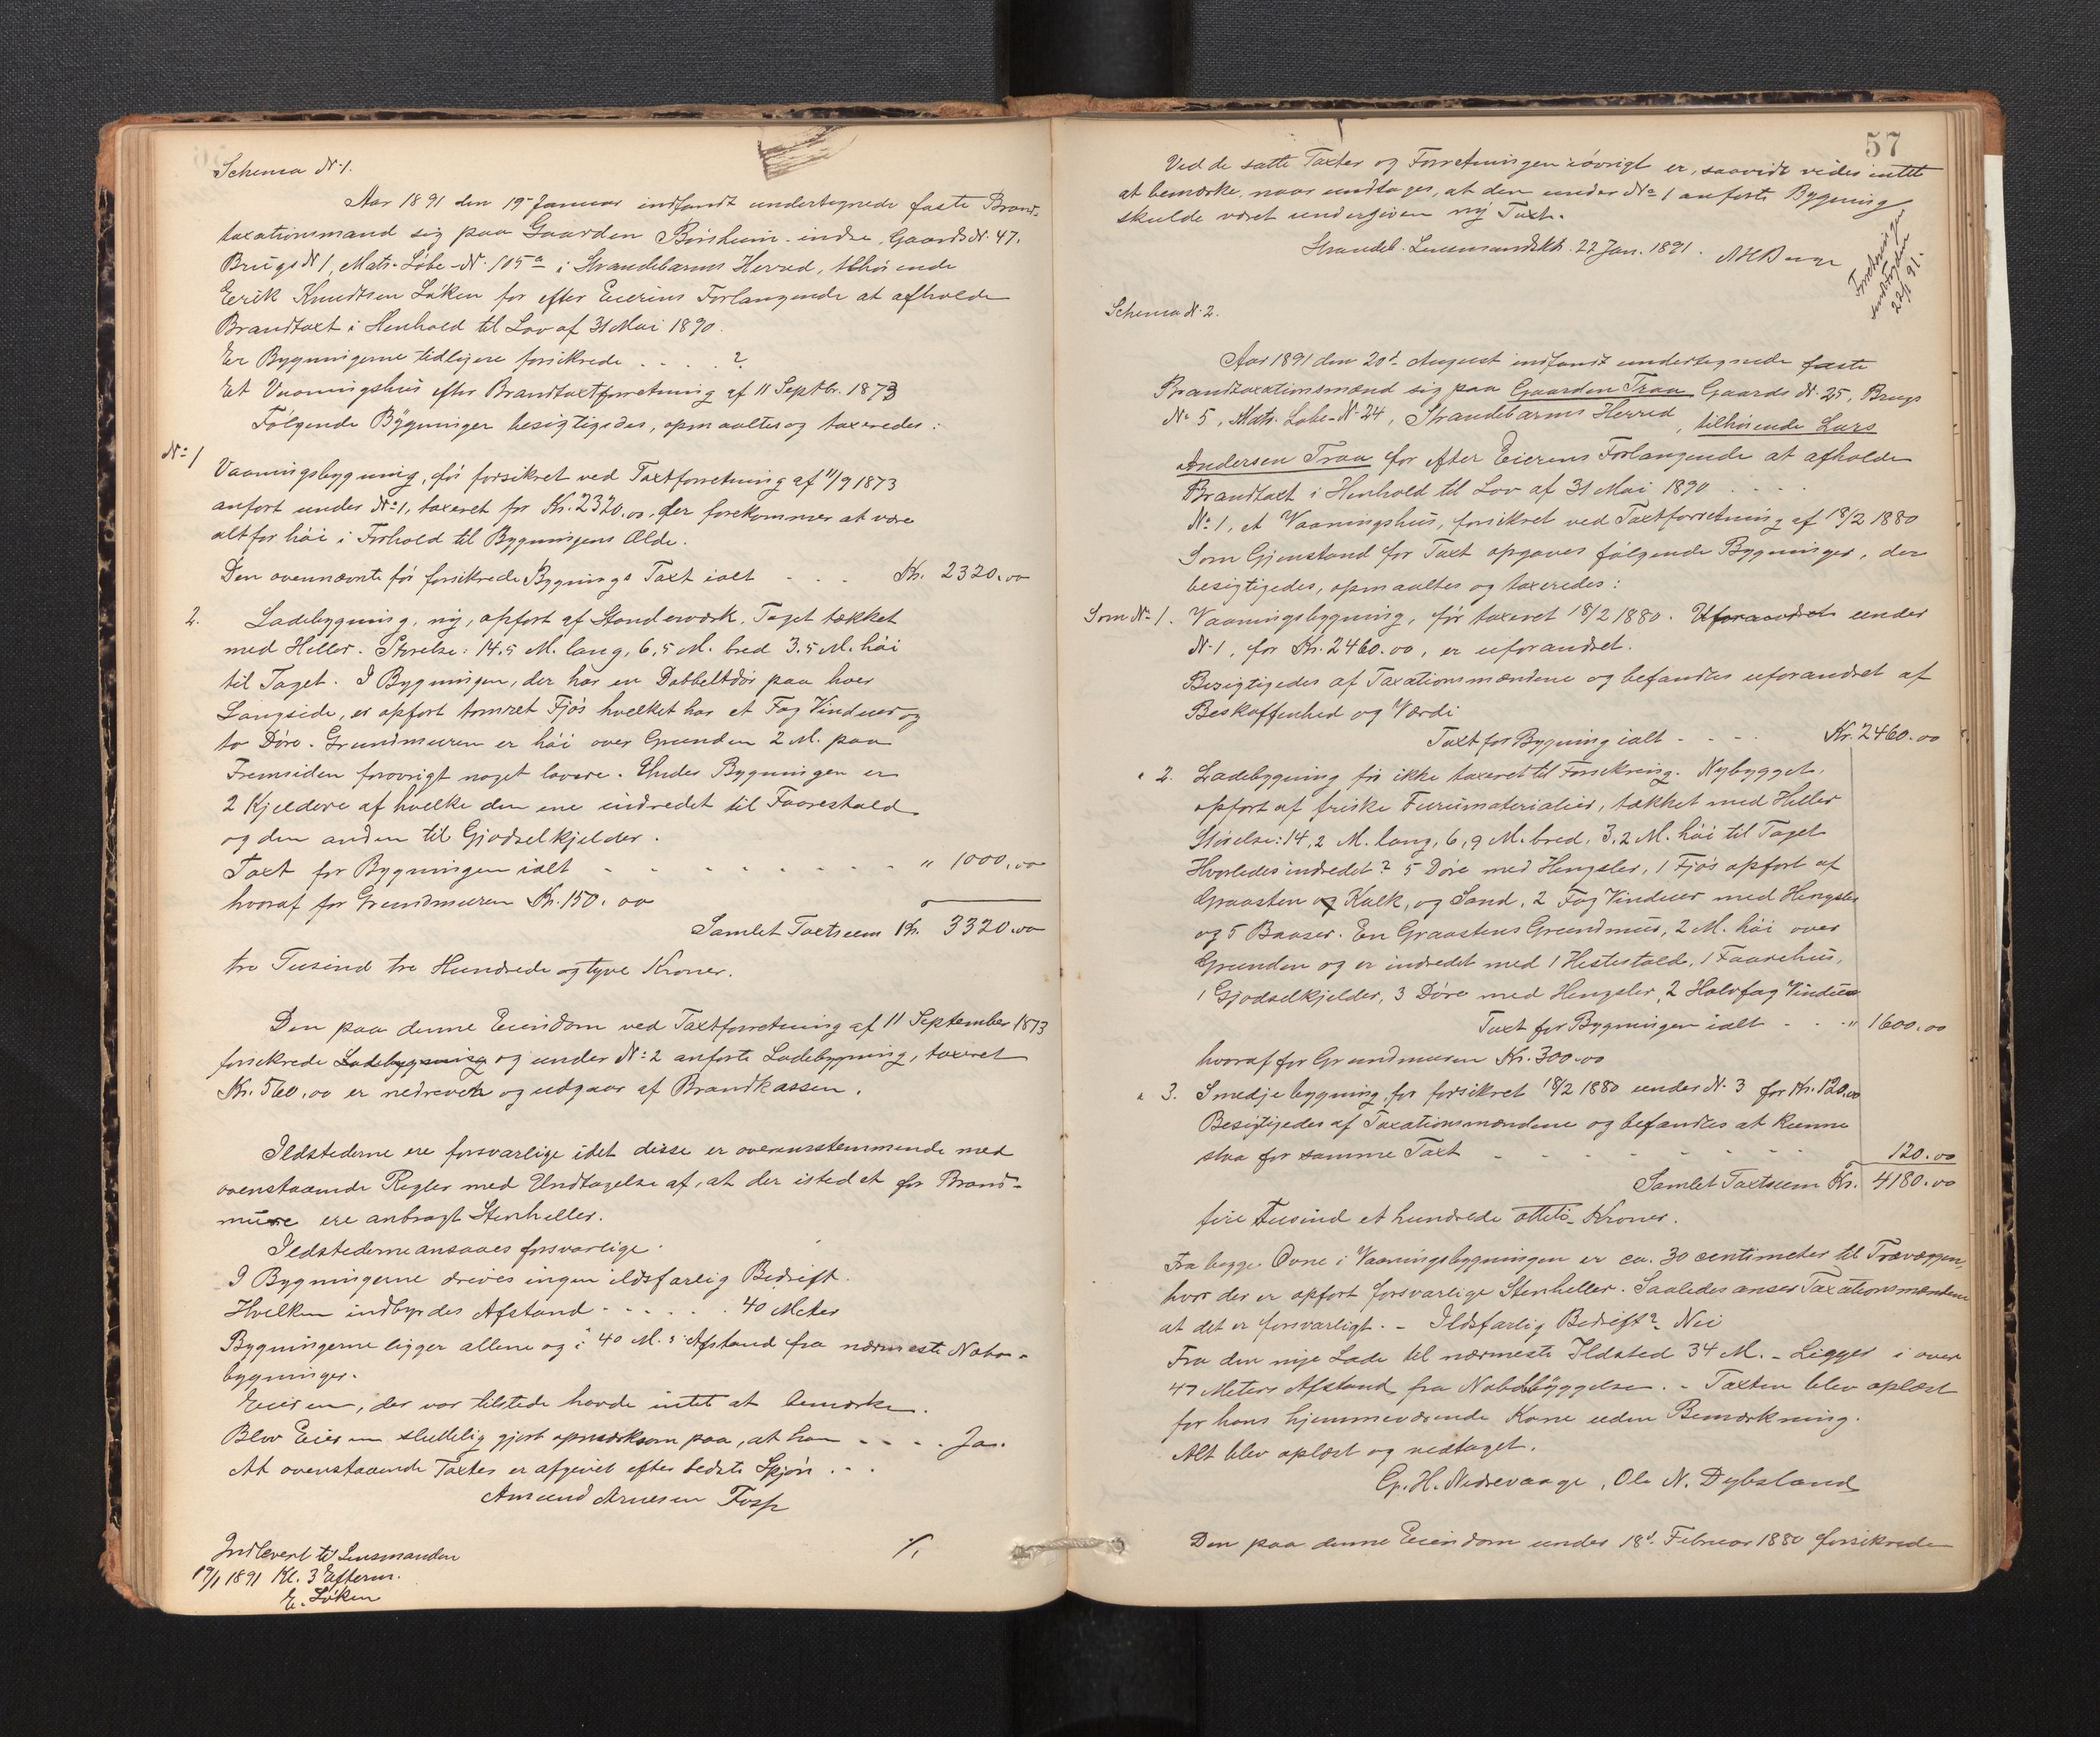 Schema No 1.
Aar 1891 den 19de Januar indfandt undertegnede faste Brand-
taxationsmænd sig paa Gaarden Børsheim indre, Gaards No 47,
Brugs No 1, Matr. Løbe-No 105a i Strandebarms Herred, tilhørende
Eerik Knudtsen Løken for efter Eierens Forlangende at afholde
Brandtaxt i Henhold til Lov af 31 Mai 1890.
Er Bygningerne tidligere forsikrede . . . . ?
Et Vaaningshus efter Brandtaxtforretning af 11 Septbr. 1873
Følgende Bygninger besigtigedes, opmaaltes og taxeredes:
No 1
Vaaningsbygning, før forsikret ved Taxtforretning af 11/9 1873
anført under No 1, taxeret for Kr. 2320.00, der forekommer at være
altfor høi i Forhold til Bygningens Ælde.
Den ovennævnte før forsikrede Bygnings Taxt ialt - - - Kr. 2320.00
2. Ladebygning, ny, opført af Standerværk. Taget tækket
med Heller. Størelse: 14,5 M. lang, 6,5 M. bred 3,5 M. høi
til Taget. I Bygningen, der har en Dobbeltdør paa hver
Langside, er opført tømret Fjøs hvelket har et Fag Vinduer og
to Døre. Grundmuren er høi over Grunden 2 M. paa
Fremsiden forøvrigt noget lavere. Under Bygningen er
2 Kjeldere af hvelke den ene indredet til Faarestald
og den anden til Gjødselkjelder.
Taxt for Bygningen ialt - - - - - - - - " 1000.00
hvoraf for Grundmuren Kr. 150.00
Samlet Taxtsum Kr. 3320.00
tre Tusind tre Hundrede og tyve Kroner.
Den paa denne Eiendom ved Taxtforretning af 11 September 1873
forsikrede Ladebygning og under No 2 anførte Ladebygning, taxeret
Kr. 560.00 er nedreven og udgaar af Brandkassen.
Ildstederne ere forsvarlige idet disse er overensstemmende med
ovenstaaende Regler med Undtagelse af, at der istedet for Brand-
mure ere anbragt Stenheller.
Ildstederne ansaaes forsvarlige.
I Bygningerne drives ingen ildsfarlig Bedrift.
Hvelken indbyrdes Afstand . . . . . . 40 Meter
Bygningerne ligger allene og i 40 M.s Afstand fra nærmeste Nabo-
bygninger.
Eieren, der var tilstede havde intet at bemærke.
Blev Eieren sluttelig gjort opmærksom paa, at han - . . . Ja.
At ovenstaaende Taxter er afgivet efter bedste Skjøn . . .
Amund Arnesen Foss
Indleveret til Lensmanden
19/1 1891 Kl. 3 Efterm.
E. Løken
57
Ved de satte Taxter og Forretningen iøvrigt er, saavidt vides intet
at bemærke, naar undtages, at den under No 1 anførte Bygning
skulde været undergiven ny Taxt.
Strandeb. Lensmandsktr. 22 Jan. 1891.
Forretningen
22/1 91.
Schema No 2.
Aar 1891 den 20de August indfandt undertegnede faste
Brandtaxationsmænd sig paa Gaarden Traa Gaards No 25, Brugs
No 5, Matr. Løbe-No 24, Strandebarms Herred, tilhørende Lars
Andersen Traa for efter Eierens Forlangende at afholde
Brandtaxt i Henhold til Lov af 31 Mai 1890 . . . .
No 1, et Vaaningshus, forsikret ved Taxtforretning af 18/2 1880
Som Gjenstand for Taxt opgaves følgende Bygninger, der
besigtigedes, opmaaltes og taxeredes:
Som No 1. Vaaningsbygning, før taxeret 18/2 1880. Uforandret under
No 1, for Kr. 2460.00, er uforandret.
Besigtigedes af Taxationsmændene og befandtes uforandret af
Beskaffenhed og Værdi
Taxt for Bygning ialt - - - - Kr. 2460.00
" 2. Ladebygning før ikke taxeret til Forsikring. Nybygget,
opført af friske Furumaterialier, tækket med Heller
Størelse: 14,2 M. lang, 6,9 M. bred, 3,2 M. høi til Taget
Hvorledes indredet? 5 Døre med Hengsler, 1 Fjøs opført af
Graasten og Kalk, og Sand, 2 Fag Vinduer med Hengsler
og 5 Baaser. En Graastens Grundmur, 2 M. høi over
Grunden og er indredet med 1 Hestestald, 1 Faarehus,
1 Gjødselkjelder, 3 Døre med Hengsler, 2 Halvfag Vinduer
Taxt for Bygningen ialt - - - " 1600.00
hvoraf for Grundmuren Kr. 300.00
" 3. Smedjebygning, før forsikret 18/2 1880 under No 3 for Kr. 120.00
Besigtigedes af Taxationsmændene og befandtes at kunne
staa for samme Taxt - - - - - - - 120.00
Samlet Taxtsum Kr. 4180.00
fire Tusind et hundrede otteti Kroner.
Fra begge Ovne i Vaaningsbygningen er ca. 30 centimeter til Trævæggen,
hvor der er opført forsvarlige Stenheller. Saaledes anser Taxationsmændene
at det er forsvarligt. - Ildsfarlig Bedrift? Nei
Fra den nye Lade til nærmeste Ildsted 34 M. - Ligger i over
47 Meters Afstand fra Nabobyggelse. - Taxten blev oplæst
for hans hjemmeværende Kone uden Bemærkning.
Alt blev oplæst og vedtaget.
G. H. Nedrevaage, Ole N. Dybsland
Den paa denne Eiendom under 18de Februar 1880 forsikrede